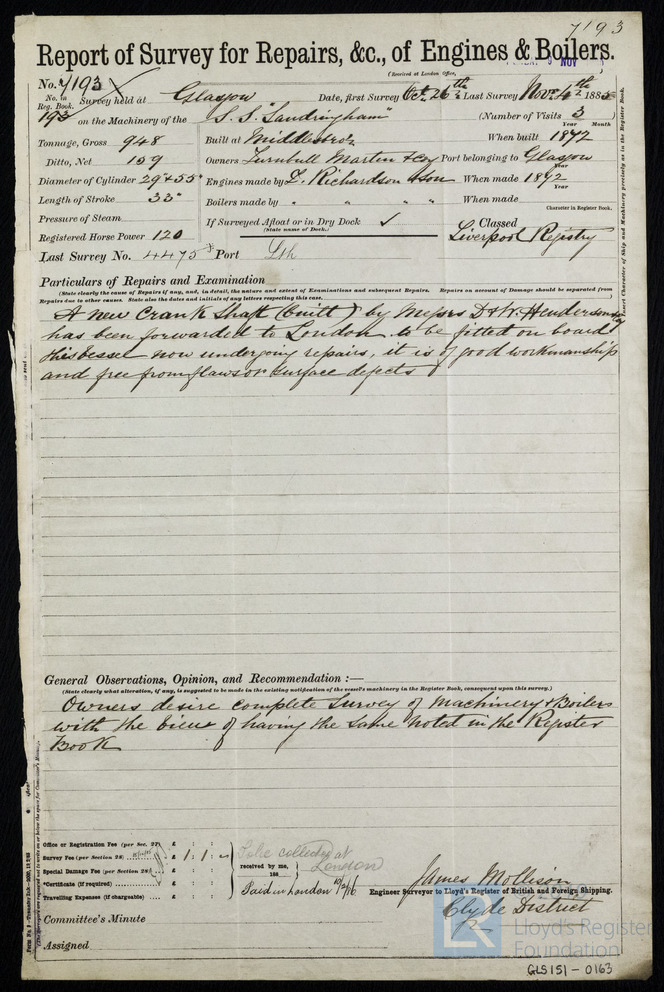 7193
Report of Survey for Repairs, &c., of Engines & Boilers.
(Received at London Office,
NOV
No. 7193
No. in Reg. Book. Survey held at Glasgow Date, first Survey Oct 26th Last Survey Nov 4th 188
193 on the Machinery of the S.S. "Sandringham" (Number of Visits 3)
Year Month
Tonnage, Gross 948 Built at Middlesbro When built 1872
Ditto, Net 159 Owners Turnbull Martin & Coy Port belonging to Glasgow
Year
Diameter of Cylinder 29 & 55" Engines made by T. Richardson & Son When made 1872
Year
Length of Stroke 33" Boilers made by " " " " When made
Character in Register Book.
Pressure of Steam If Surveyed Afloat or in Dry Dock ✓ Classed
(State name of Dock.)
Registered Horse Power 120 Liverpool Registry
Last Survey No. 4475 Port Lth
Particulars of Repairs and Examination
(State clearly the cause of Repairs if any, and, in detail, the nature and extent of Examinations and subsequent Repairs. Repairs on account of Damage should be separated from
Repairs due to other causes. State also the dates and initials of any letters respecting this case. )
A new Crank Shaft (built) by Messrs D & W. Henderson & Coy
has been forwarded to London to be fitted on board
this vessel now undergoing repairs, it is of good workmanship
and free from flaws or surface defects
General Observations, Opinion, and Recommendation :—
(State clearly what alteration, if any, is suggested to be made in the existing notification of the vessel's machinery in the Register Book, consequent upon this survey.)
Owners desire complete Survey of Machinery & Boilers
with the view of having the same noted in the Register
Book
Office or Registration Fee (per Sec. 27) £ : :
Survey Fee (per Section 28) £ 1 : 1 : –
Special Damage Fee (per Section 28) £ : :
*Certificate (if required) £ : :
Travelling Expenses (if chargeable) £ : :
To be collected at London
received by me,
188
Paid in London
James Mollison
Engineer Surveyor to Lloyd's Register of British and Foreign Shipping.
Clyde District
Committee's Minute
Assigned
LR
Lloyd's Register
Foundation
GLS151 - 0163
Insert Character of Ship and Machinery precisely as in the Register Book.